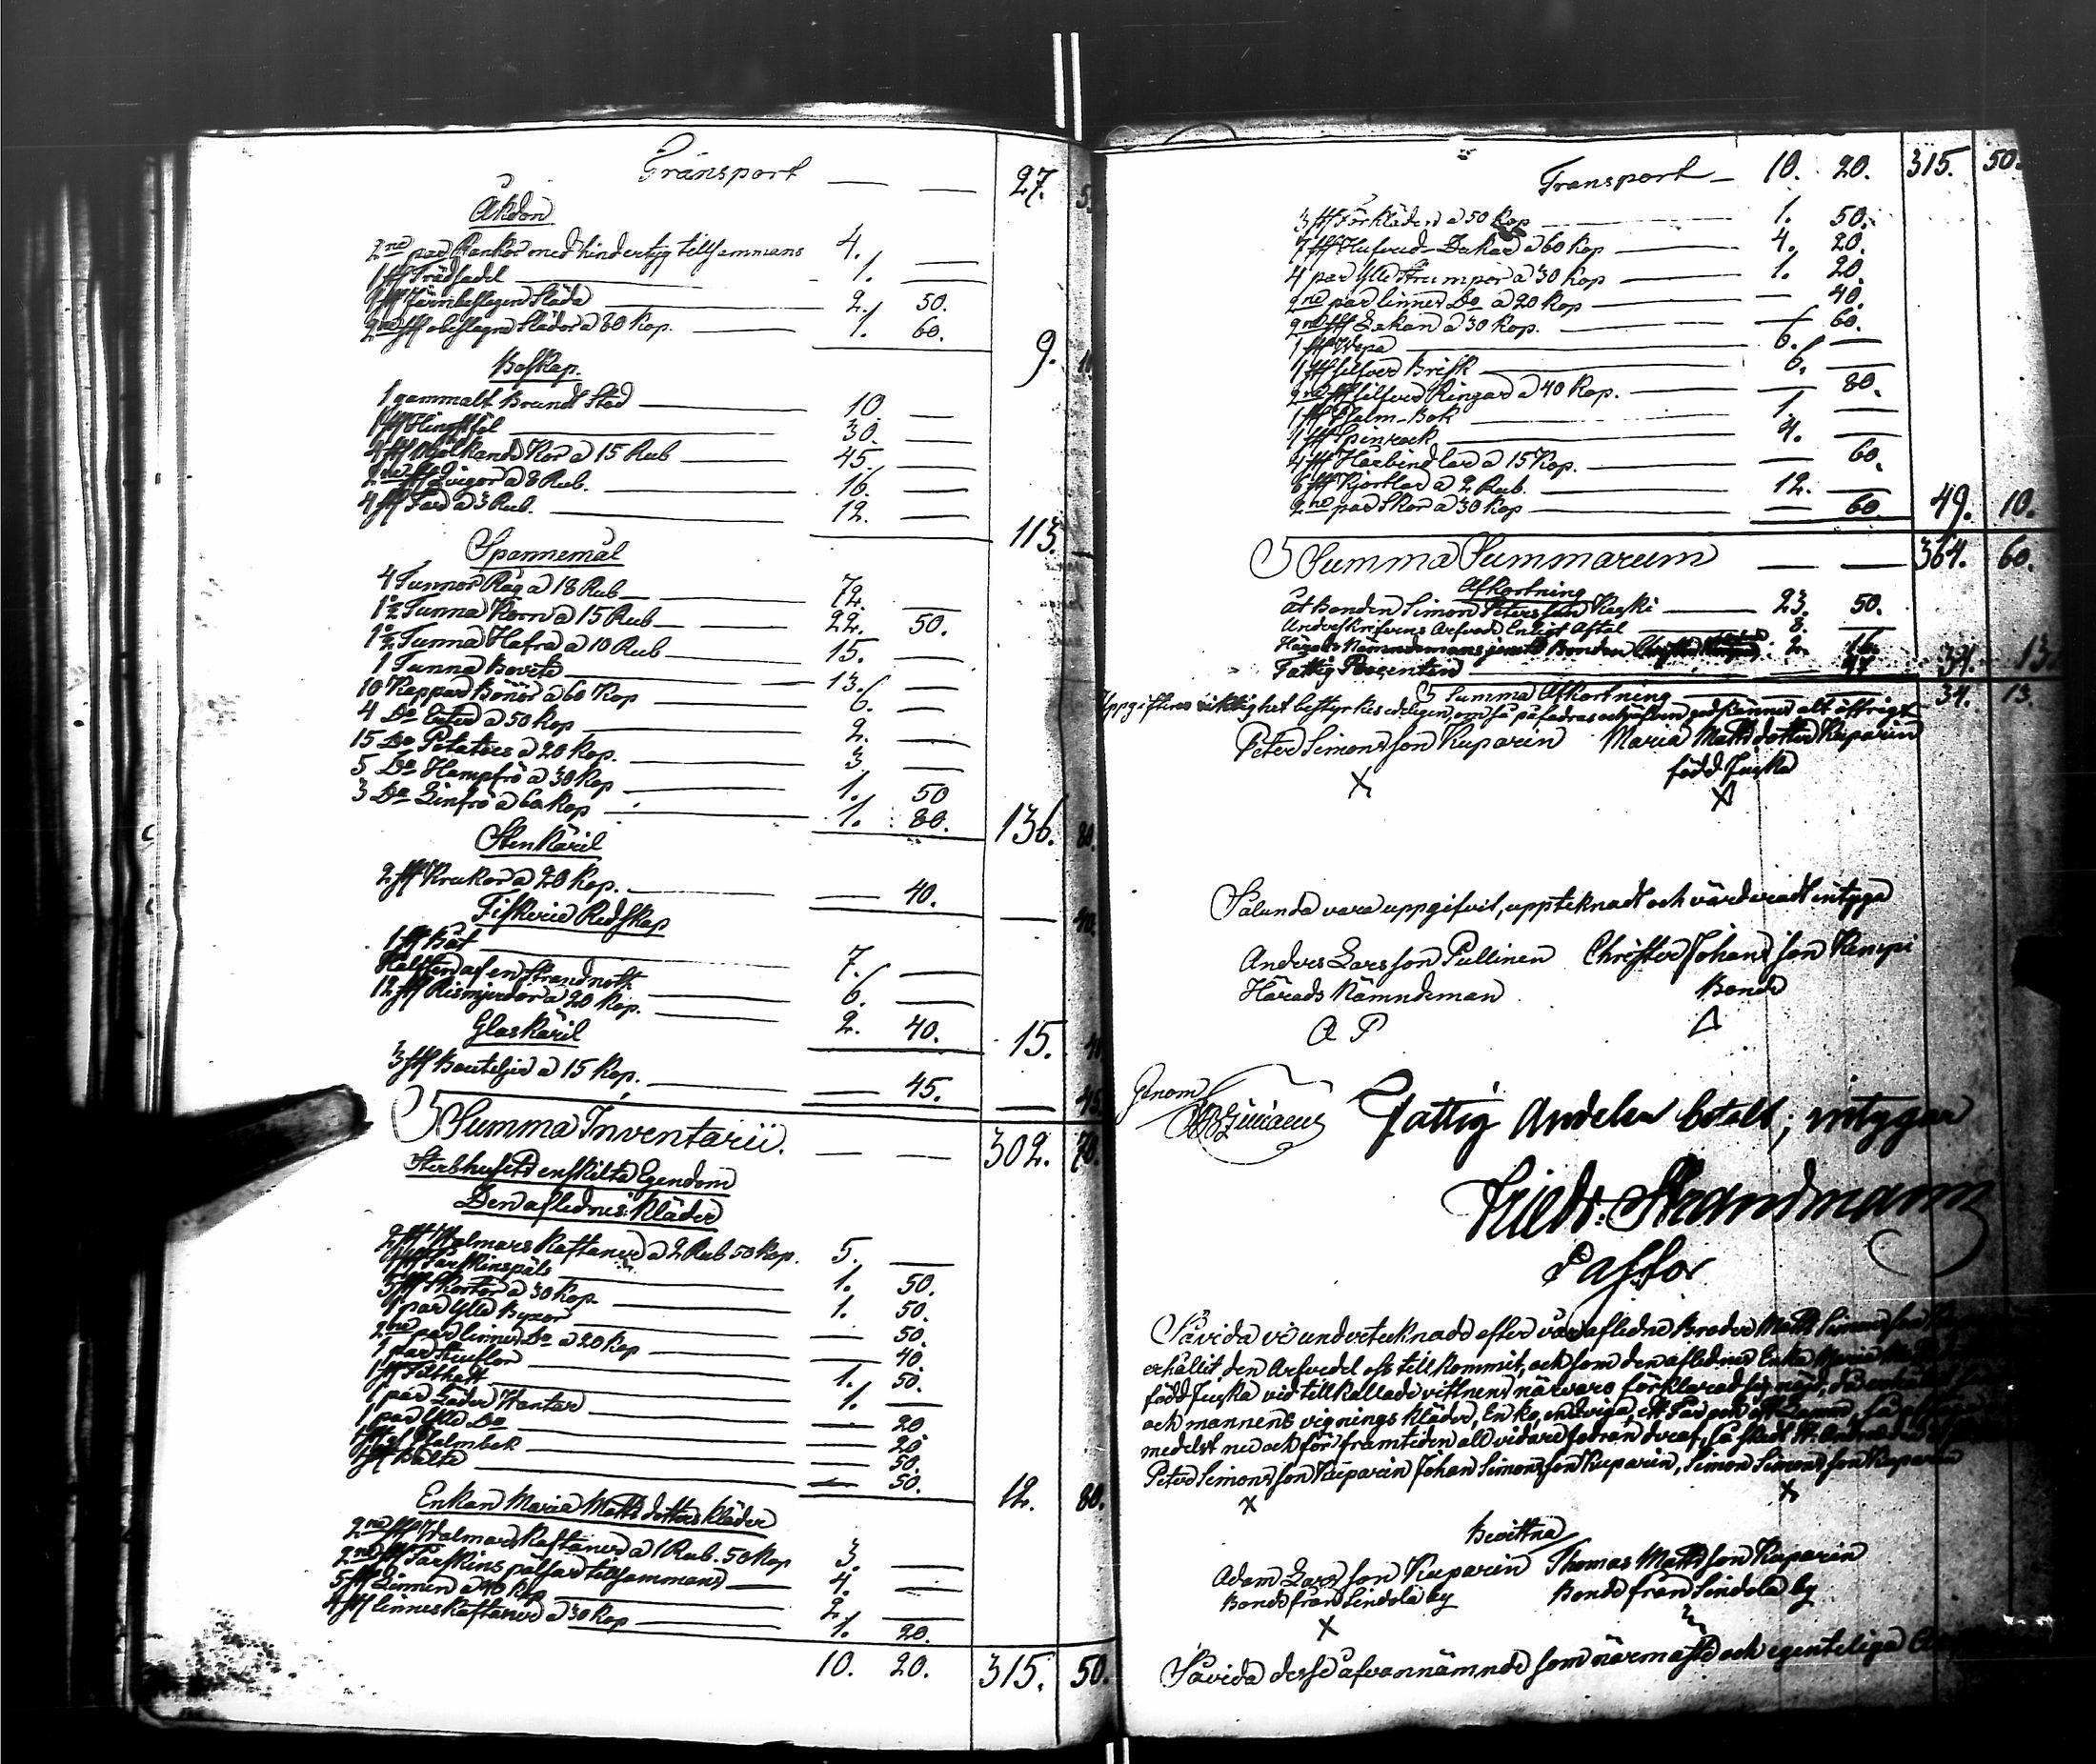 Transport — — 27. 5
Åkdon
2ne par Kankor med hindertyg tillsammans 4. —
1 st Trädsadel 1. —
1 st Järnbeslagen Släda 2. 50.
2ne st obeslagne Slädor a 80 Kop. 1. 60. 9. 10
Boskap.
1 gammalt Brundt Stod 10 —
1 st Hingstföl 30. —
st Mjölkande Kor a 15 Rub 45. —
2ne st Qvigor a 8 Rub. 16. —
4 st Får a 3 Rub. 12. — 113. —
Spannemål
4 Tunnor Råg a 18 Rub 72. —
1½ Tunna Korn a 15 Rub 22. 50.
1½ Tunna Hafra a 10 Rub 15. —
1 Tunna Bovete 13. —
10 Kappar Bönor a 60 Kop 6. —
4 Do Erter a 50 Kop 2. —
15 Do Potatoes a 20 Kop. 3 —
5 Do Hampfrö a 30 Kop 1. 50
3 Do Linfrö a 60 Kop 1. 80. 136. 80.
Stenkäril
2 st Krukor a 20 Kop. — 40. — 40.
Fiskerie Redskap
1 st Båt 7. —
Hälften af en Strandnoth 6. —
12 st Rismjerdor a 20 Kop. 2. 40. 15. 40
Glaskäril
3 st Bouteljer a 15 Kop. — 45. — 45.
Summa Inventarii. — — 302. 70.
Sterbhusets enskilta Egendom
Den aflednes Kläder
2 st Walmars Kaftaner a 2 Rub 50 Kop. 5. —
1 st Fårskinspäls 1. 50.
5 st Skjortor a 30 Kop. 1. 50.
1 par Ylle Byxor — 50.
2ne par linne Do a 20 Kop — 40.
1 par Stuflor 1. 50.
1 st Filthatt 1. —
1 par Läder Hantar — 20
1 par Ylle Do — 20
1 st Psalmbok — 50.
1 st Bälte — 50. 12. 80.
Enkan Maria Matts dotters kläder
2ne st Walmars Kaftaner a 1 Rub. 50 Kop 3. —
2ne st Fårskins pälsar tillsammans 4. —
5 st Linnen a 40 Kop 2. —
4 st linnes Kaftaner a 30 Kop 1. 20.
10. 20. 315. 50.
Transport — 10. 20. 315. 50.
3 st Förkläden a 50 Kop 1. 50.
7 st Hufvud Dukar a 60 Kop 4. 20.
4 par Ylle Strumpor a 30 Kop 1. 20
2ne par linnes Do a 20 Kop — 40.
2ne st Lakan a 30 Kop. — 60.
1 st Wepa 6. —
1 st silfver Brisk 6. —
2ne st silfver Ringar a 40 Kop. — 80.
1 st Psalm-Bok 1. —
1 st Spinrock 4. —
4 st Hårbindlar a 15 Kop. — 60.
6 st Kjortlar a 2 Rub. 12. —
2ne par Skor a 30 Kop — 60. 49. 10.
Summa Summarum — — 364. 60.
Afkortning
åt Bonden Simon Petersson Kaski 23. 50.
Underskrifvens Arfvode Enligt Aftal 8. —
Härads Nämndemans jemte Bonden 2. 16.
Fattig Procenten 47 34. 13.
Summa Afkortning 34. 13.
Uppgiftens riktighet bestyrkes edeligen, om så påfodras och
Peter Simonsson Kuparin Maria Matts dotter Kuparin
född Juska
X
Sålunda vara uppgifvit, uppteknadt och värderadt intyga
Anders Larsson Pullinen Christer Johansson Kempi
Härads Nämndeman Bonde
A P
Genom
Fattig Andelen betalt; intygar
Friedr. Strandmann
Pastor
Såvida vi undertecknade efter vår aflidne Broder Matts Simonsson
erhållit den Arfvedel oss tillkommit, och som den aflednes Enka Maria
född Juska vid tillkallade vittnens närvaro förklarad sig nöjd,
och mannens vignings kläder, En ko, en qviga, ett Får och
medelst ne och för framtiden all vidare fodran deraf,
Peter Simonsson Kuparin Johan Simonsson Kuparin, Simon Simonsson Kuparin
X X
Bevittna
Adam Larsson Kuparin Thomas Mattsson Kuparin
Bonde från Sindola by Bonde från Sindola by
X
Såvida desse åfvannämnde som närmaste och egenteliga